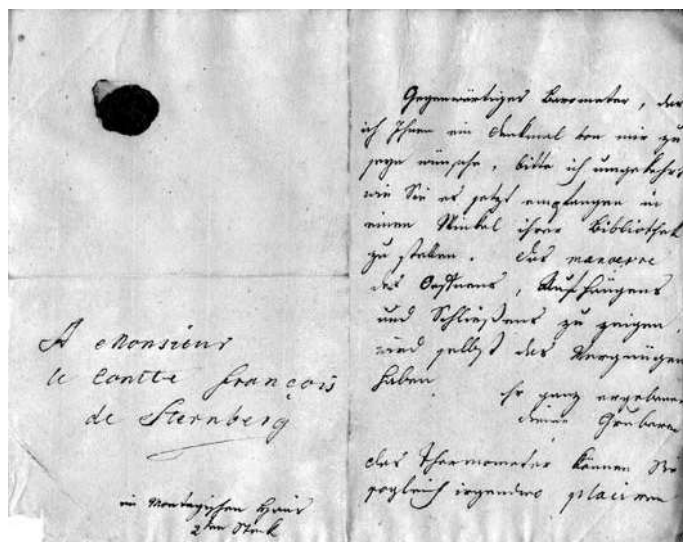 A Monsieur
le Contte François
de Sternberg
im Montagischen Haus
2ten Stock
Gegenwärtiges Barometer, das
ich Ihnen ein Denkmal von mir zu
seyn wünsche, bitte ich umgekehrt
wie Sie es jetzt empfangen in
einen Winkel ihrer Bibliothek
zu stellen. Das manoevre
des Oeffnens, Aufhängens
und Schließens zu zeigen,
wird selbst das Vergnügen
haben
Ihr ganz ergebener
Gruber
Das Thermometer können Sie
sogleich irgendwo placiren